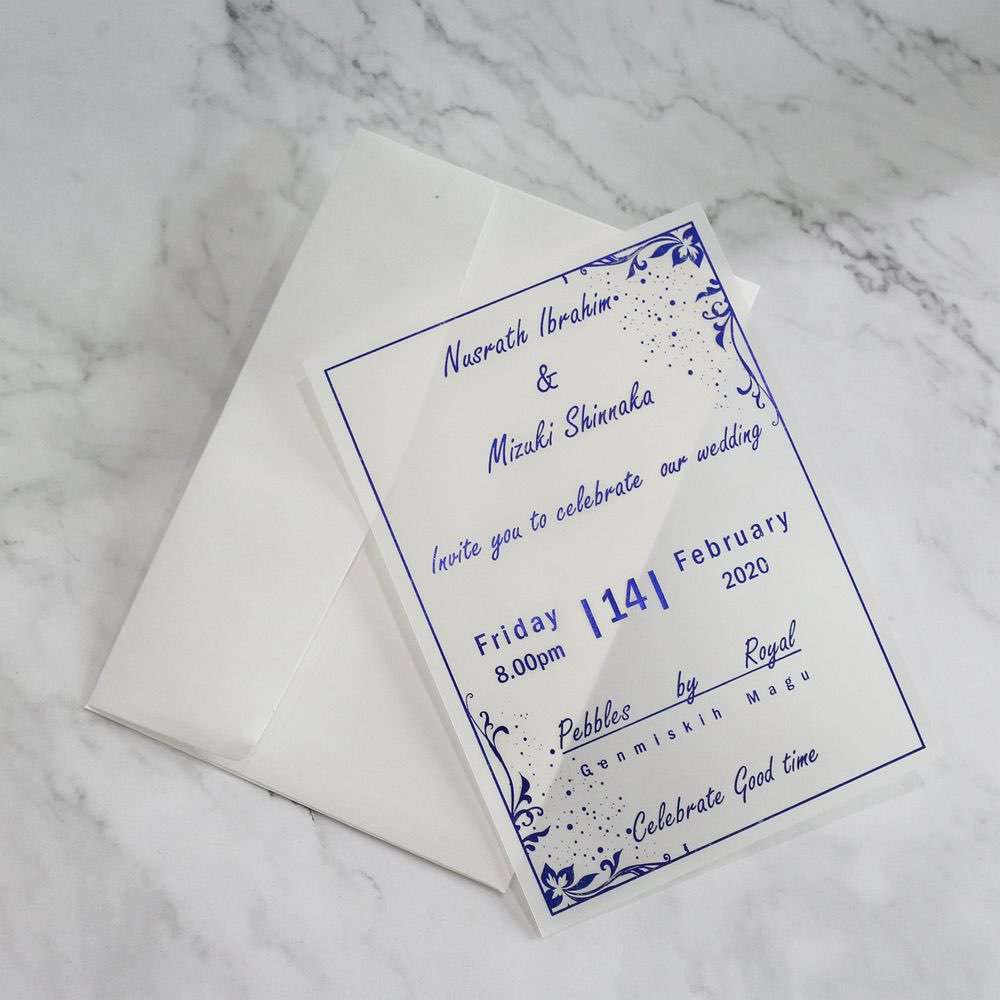 Nusrath Ibrahim
&
Mizuki Shinnaka
Invite you to celebrate our wedding
Friday |14| February
8.00pm 2020
Pebbles by Royal
Genmiskih Magu
Celebrate Good time